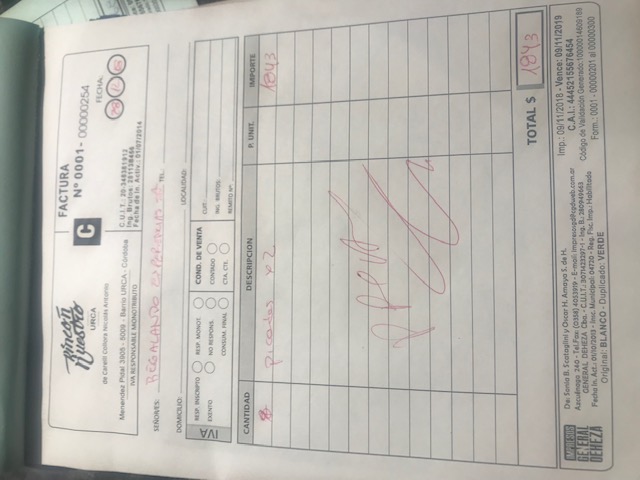 Rincón
Nuestro
URCA
de Carelli Collora Nicolás Antonio
Menendez Pidal 3905 - 5009 - Barrio URCA - Córdoba
IVA RESPONSABLE MONOTRIBUTO
C
FACTURA
Nº 0001- 00000254
FECHA:
C.U.I.T.: 20-348381912
Ing. Brutos: 281138456
Fecha de In. Activ.: 01/07/2014
SEÑOR/ES: REGALANDO
TEL.:
DOMICILIO:
LOCALIDAD:
IVA
RESP. INSCRIPTO
RESP. MONOT.
EXENTO
NO RESPONS.
CONSUM. FINAL
COND. DE VENTA
CONTADO
CTA. CTE.
CUIT:
ING. BRUTOS:
REMITO Nº:
CANTIDAD DESCRIPCION P. UNIT. IMPORTE
picadas x2 1843
TOTAL $ 1843
IMPRESOS
GENERAL
DEHEZA
De: Sonia B. Scataglini y Oscar H. Amaya S. de H.
Azcuénaga 240 - Tel.Fax: (0358) 4053919 - E-mail: impresosgd@cgdweb.com.ar
GENERAL DEHEZA Cba. - C.U.I.T.: 3071423297-1 - Ing. B.: 280949663
Fecha In. Act.: 01/10/2013 - Insc. Municipal: 04720 - Reg. Fisc. Imp.: Habilitado
Original: BLANCO - Duplicado: VERDE
Imp.: 09/11/2018 - Vence: 09/11/2019
C.A.I.: 44452155676454
Código de Validación Generado: 10000014609189
Form.: 0001 - 00000201 al 00000300